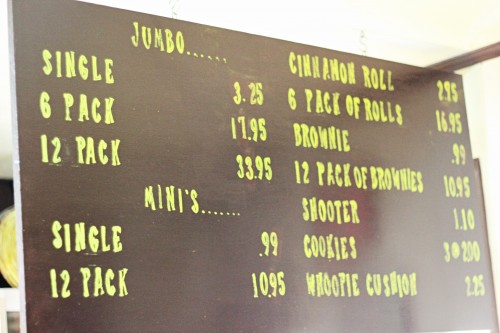 JUMBO......
SINGLE 3.25
6 PACK 17.95
12 PACK 33.95
MINI'S.......
SINGLE .99
12 PACK 10.95
CINNAMON ROLL 2.95
6 PACK OF ROLLS 16.95
BROWNIE .99
12 PACK OF BROWNIES 10.95
SHOOTER 1.10
COOKIES 3@200
WHOOPIE CUSHION 2.25